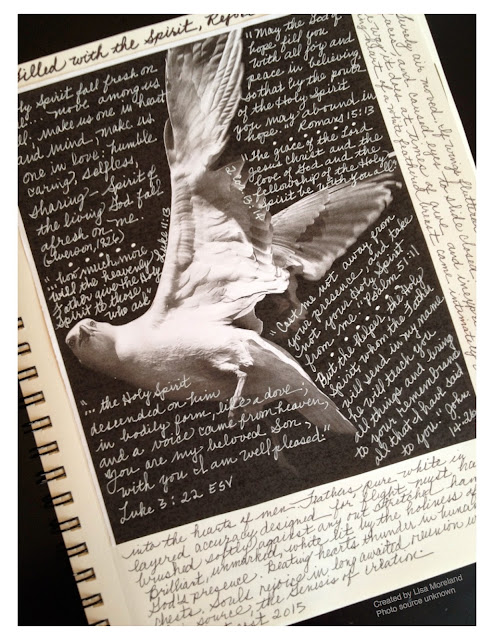 Filled with the Spirit, Rejoi
Spirit fall fresh on
move among us
all. make us one in heart
and mind, make us
one in love: humble
caring, selfless,
sharing - Spirit of
the living God fall
afresh on me.
(Iverson, 1926)
"... how much more
will the heavenly
Father give the Holy
Spirit to those
who ask"
Luke 11:13
"May the God of
hope fill you
with all joy and
peace in believing
so that by the power
of the Holy Spirit
you may abound in
hope." Romans 15:13
"The grace of the Lord
Jesus Christ and the
love of God and the
fellowship of the Holy
Spirit be with you all"
"Cast me not away from
your presence, and take
not your Holy Spirit
from me." Psalm 51:11
"But the Helper, the Holy
Spirit, whom the Father
will send in my name
he will teach you
all things and bring
to your remembrance
all that I have said
to you." John
14:26
"... the Holy Spirit
descended on him
in bodily form, like a dove;
and a voice came from heaven,
You are my beloved Son;
with you I am well pleased."
Luke 3:22 ESV
into the hearts of men - feathers pure white in
layered accuracy designed for flight
brushed softly against any out stretched
Brilliant, unmarked, white, lit by the holiness of
God's presence. Beating hearts thunder in human
chests. Souls rejoice in long awaited reunion w
source, the Genesis of Creation -
2015
air moved by wing flutters
and caused eyes to slide closed
came intimately
Created by Lisa Moreland
Photo source unknown